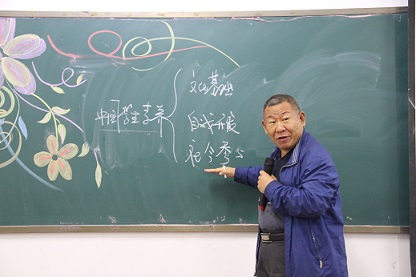 中国学生素养
文化基础
自我发展
社会参与